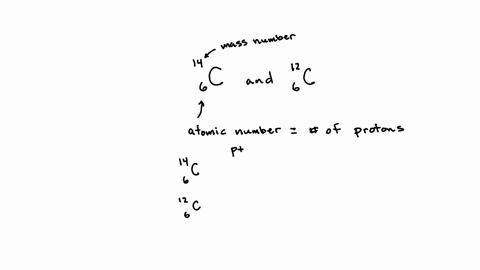 mass number
¹⁴₆C and ¹²₆C
atomic number = # of protons
p+
¹⁴₆C
¹²₆C